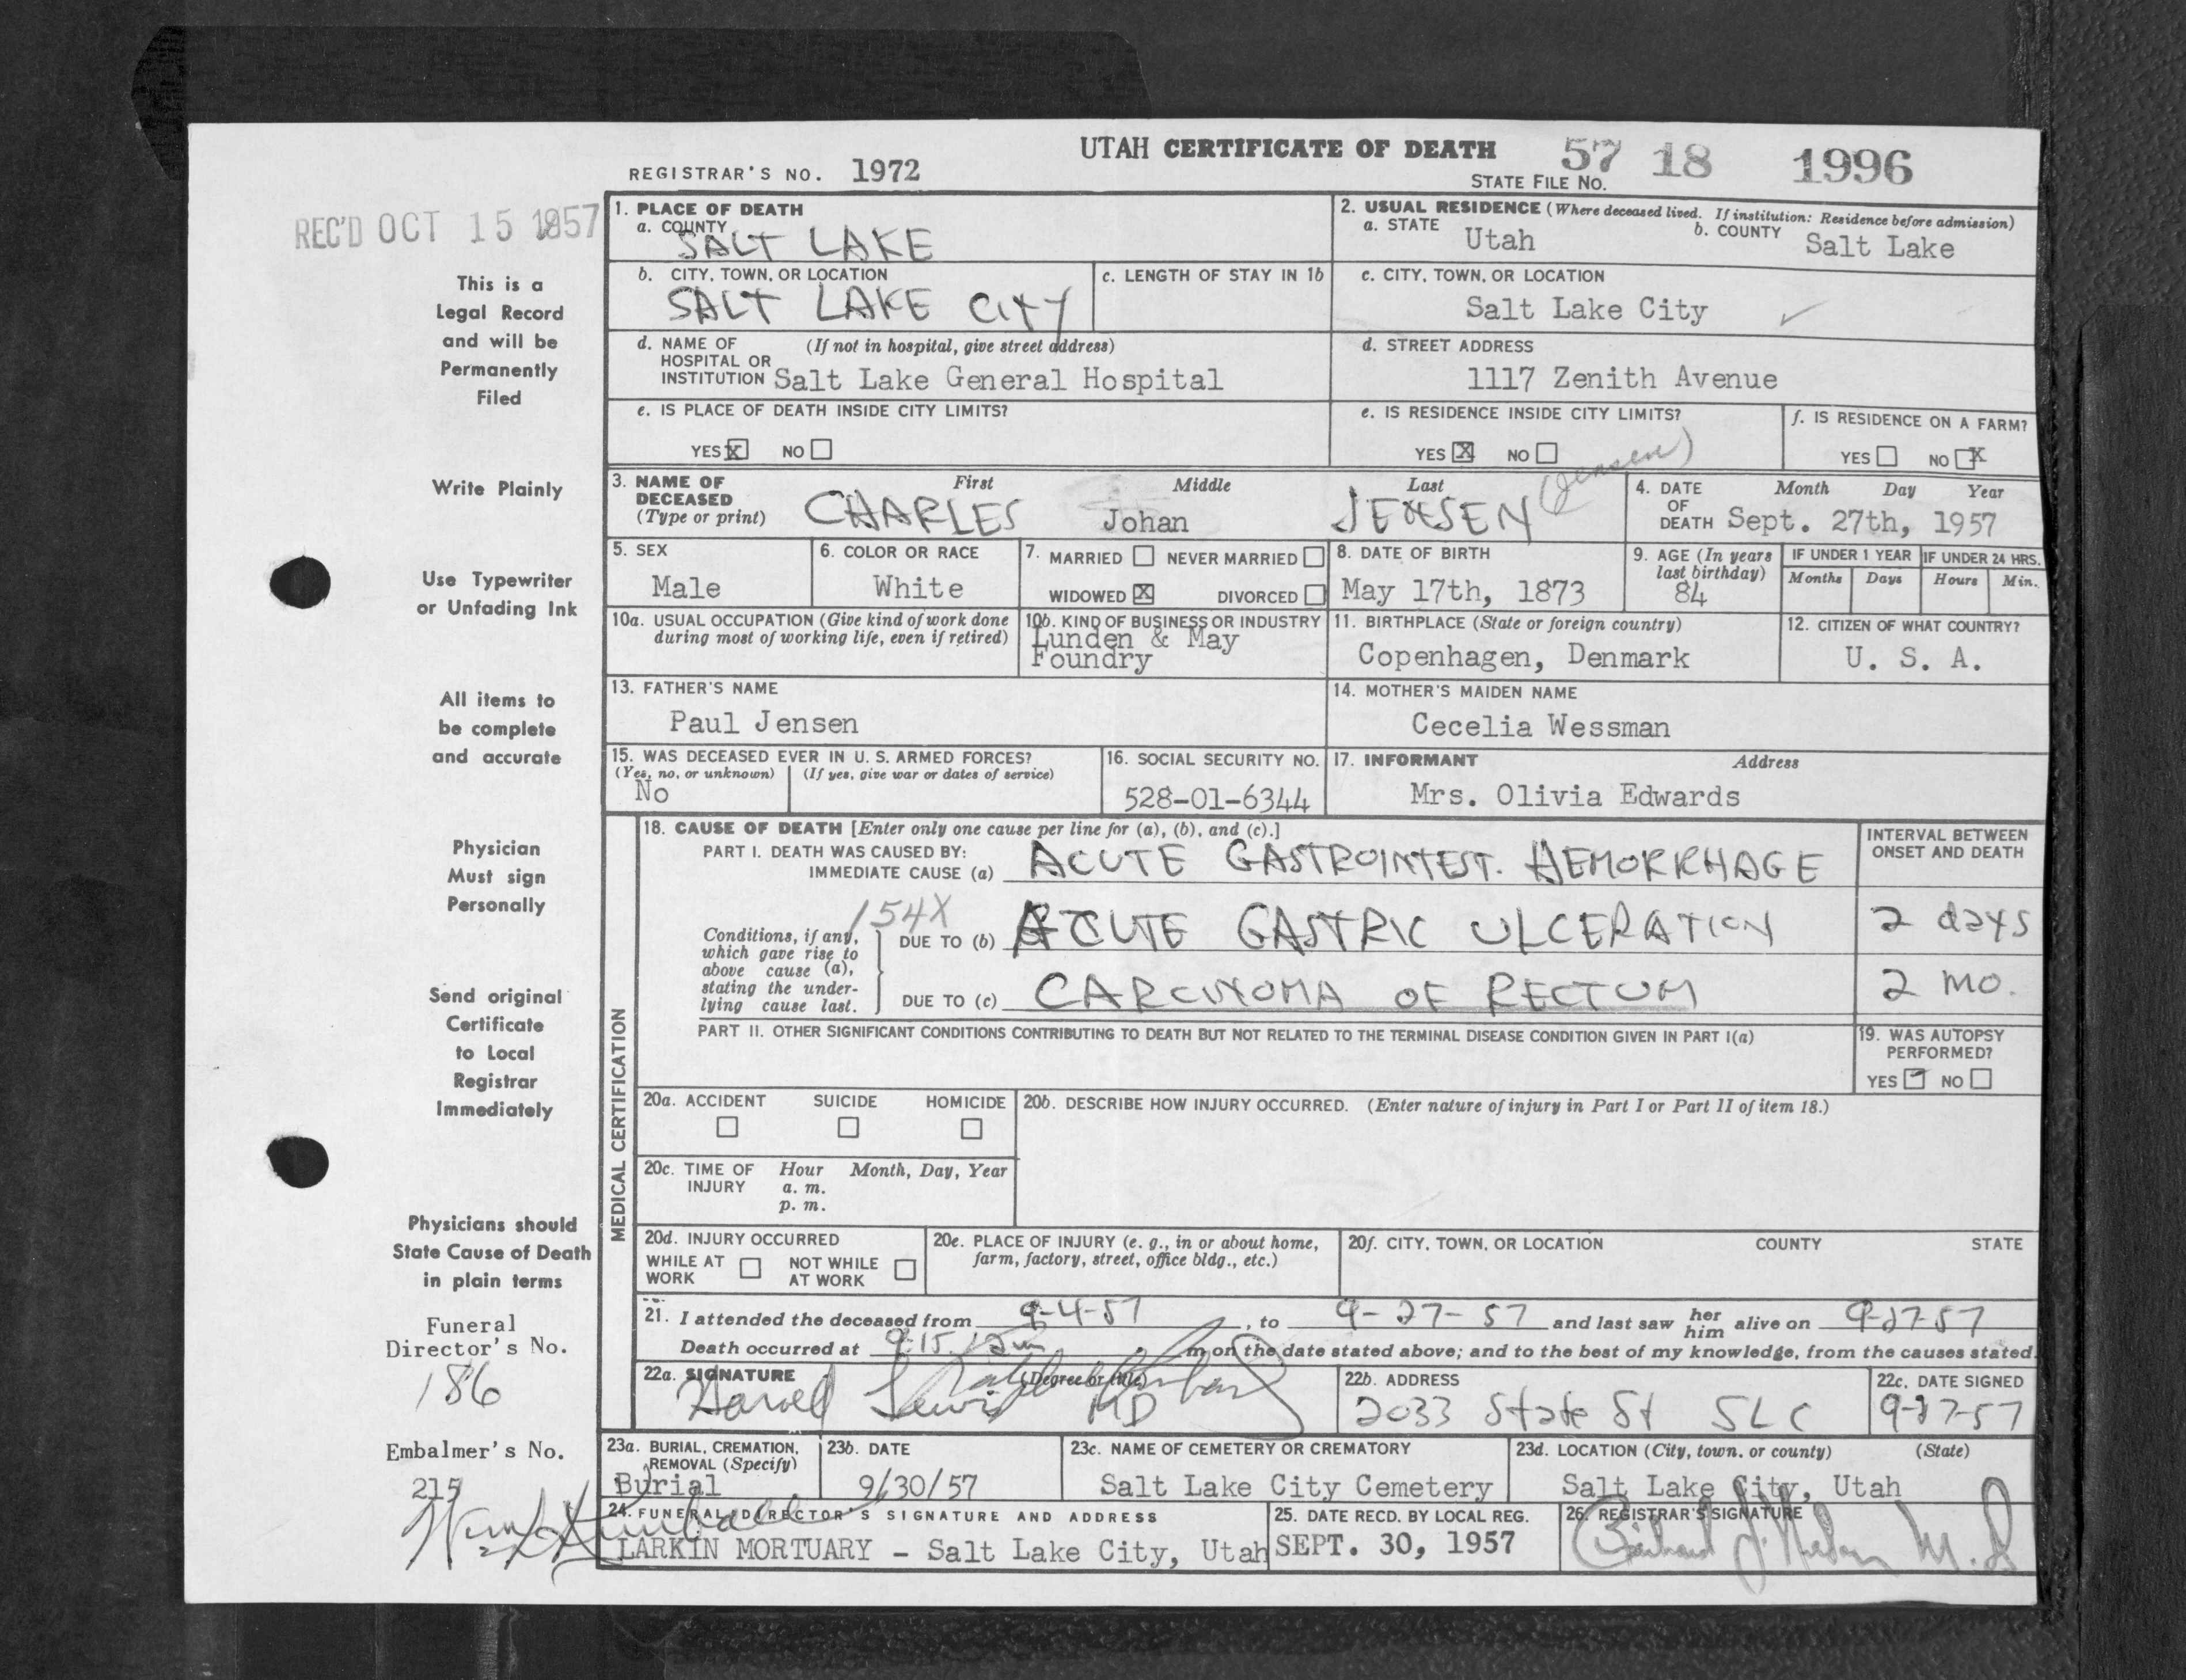 UTAH CERTIFICATE OF DEATH 57 18 1996
REGISTRAR'S NO. 1972
STATE FILE NO.
REC'D OCT 15 1957
This is a
Legal Record
and will be
Permanently
Filed
Write Plainly
Use Typewriter
or Unfading Ink
All items to
be complete
and accurate
Physician
Must sign
Personally
Send original
Certificate
to Local
Registrar
Immediately
Physicians should
State Cause of Death
in plain terms
Funeral
Director's No.
186
Embalmer's No.
215
1. PLACE OF DEATH
a. COUNTY
SALT LAKE
2. USUAL RESIDENCE (Where deceased lived. If institution: Residence before admission)
a. STATE Utah b. COUNTY Salt Lake
b. CITY, TOWN, OR LOCATION
SALT LAKE CITY
c. LENGTH OF STAY IN 1b
c. CITY, TOWN, OR LOCATION
Salt Lake City
d. NAME OF (If not in hospital, give street address)
HOSPITAL OR
INSTITUTION Salt Lake General Hospital
d. STREET ADDRESS
1117 Zenith Avenue
e. IS PLACE OF DEATH INSIDE CITY LIMITS?
YES X NO
e. IS RESIDENCE INSIDE CITY LIMITS?
YES X NO
f. IS RESIDENCE ON A FARM?
YES NO X
3. NAME OF DECEASED (Type or print)
First Middle Last
CHARLES Johan JENSEN (Jensen)
4. DATE OF DEATH Month Day Year
Sept. 27th, 1957
5. SEX
Male
6. COLOR OR RACE
White
7. MARRIED NEVER MARRIED
WIDOWED X DIVORCED
8. DATE OF BIRTH
May 17th, 1873
9. AGE (In years last birthday)
84
IF UNDER 1 YEAR
Months Days
IF UNDER 24 HRS.
Hours Min.
10a. USUAL OCCUPATION (Give kind of work done
during most of working life, even if retired)
10b. KIND OF BUSINESS OR INDUSTRY
Lunden & May
Foundry
11. BIRTHPLACE (State or foreign country)
Copenhagen, Denmark
12. CITIZEN OF WHAT COUNTRY?
U. S. A.
13. FATHER'S NAME
Paul Jensen
14. MOTHER'S MAIDEN NAME
Cecelia Wessman
15. WAS DECEASED EVER IN U. S. ARMED FORCES?
(Yes, no, or unknown) (If yes, give war or dates of service)
No
16. SOCIAL SECURITY NO.
528-01-6344
17. INFORMANT Address
Mrs. Olivia Edwards
MEDICAL CERTIFICATION
18. CAUSE OF DEATH [Enter only one cause per line for (a), (b), and (c).]
PART I. DEATH WAS CAUSED BY:
IMMEDIATE CAUSE (a) ACUTE GASTROINTEST. HEMORRHAGE
INTERVAL BETWEEN
ONSET AND DEATH
154X
Conditions, if any,
which gave rise to
above cause (a),
stating the under-
lying cause last.
DUE TO (b) ACUTE GASTRIC ULCERATION 2 days
DUE TO (c) CARCINOMA OF RECTUM 2 mo.
PART II. OTHER SIGNIFICANT CONDITIONS CONTRIBUTING TO DEATH BUT NOT RELATED TO THE TERMINAL DISEASE CONDITION GIVEN IN PART I(a)
19. WAS AUTOPSY
PERFORMED?
YES NO
20a. ACCIDENT SUICIDE HOMICIDE
20b. DESCRIBE HOW INJURY OCCURRED. (Enter nature of injury in Part I or Part II of item 18.)
20c. TIME OF INJURY Hour Month, Day, Year
a. m.
p. m.
20d. INJURY OCCURRED
WHILE AT WORK NOT WHILE AT WORK
20e. PLACE OF INJURY (e. g., in or about home,
farm, factory, street, office bldg., etc.)
20f. CITY, TOWN, OR LOCATION COUNTY STATE
21. I attended the deceased from 9-4-57, to 9-27-57 and last saw her him alive on 9-27-57
Death occurred at 9:15 am m on the date stated above; and to the best of my knowledge, from the causes stated.
22a. SIGNATURE (Degree or title)
Harold Lewis MD
22b. ADDRESS
2033 State St SLC
22c. DATE SIGNED
9-27-57
23a. BURIAL, CREMATION,
REMOVAL (Specify)
Burial
23b. DATE
9/30/57
23c. NAME OF CEMETERY OR CREMATORY
Salt Lake City Cemetery
23d. LOCATION (City, town, or county) (State)
Salt Lake City, Utah
24. FUNERAL DIRECTOR'S SIGNATURE AND ADDRESS
LARKIN MORTUARY - Salt Lake City, Utah
25. DATE RECD. BY LOCAL REG.
SEPT. 30, 1957
26. REGISTRAR'S SIGNATURE